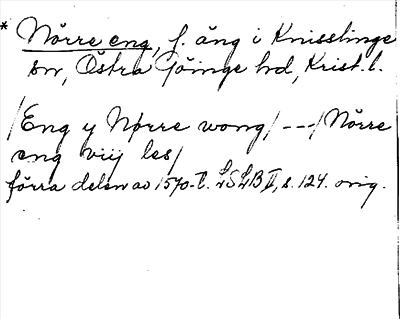 * Nörre eng, f. äng i Knisslinge
sn, Östra Göinge hd, Krist. l.
/Eng y Nørre wong/ ---/Nörre
eng viij les/
förra delen av 1570-t. LSLB II, s. 124. orig.